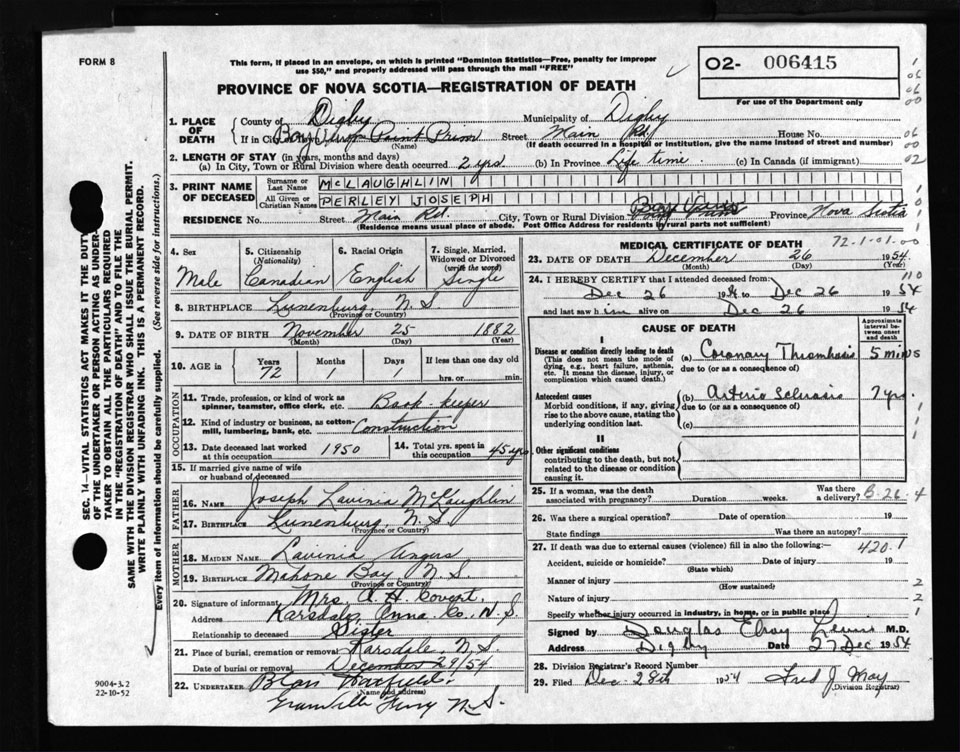 FORM 8
This form, if placed in an envelope, on which is printed "Dominion Statistics—Free, penalty for improper
use $50," and properly addressed will pass through the mail "FREE"
02- 006415
For use of the Department only
PROVINCE OF NOVA SCOTIA—REGISTRATION OF DEATH
1. PLACE OF DEATH
County of Digby Municipality of Digby
If in City or Town Bay View Point Prim (Name) Street Main Rd. House No.
(If death occurred in a hospital or institution, give the name instead of street and number)
2. LENGTH OF STAY (in years, months and days)
(a) In City, Town or Rural Division where death occurred 2 yrs (b) In Province Life time. (c) In Canada (if immigrant)
3. PRINT NAME OF DECEASED
Surname or Last Name McLAUGHLIN
All Given or Christian Names PERLEY JOSEPH
RESIDENCE No. Street Main Rd. City, Town or Rural Division Bay View Province Nova Scotia
(Residence means usual place of abode. Post Office Address for residents in rural parts not sufficient)
4. Sex Male
5. Citizenship (Nationality) Canadian
6. Racial Origin English
7. Single, Married, Widowed or Divorced (write the word) Single
8. BIRTHPLACE Lunenburg N.S. (Province or Country)
9. DATE OF BIRTH November 25 1882
(Month) (Day) (Year)
10. AGE in Years 72 Months 1 Days 1 If less than one day old hrs. or min.
OCCUPATION
11. Trade, profession, or kind of work as spinner, teamster, office clerk, etc. Book-keeper
12. Kind of industry or business, as cotton-mill, lumbering, bank, etc. Construction
13. Date deceased last worked at this occupation 1950 14. Total yrs. spent in this occupation 45 yrs
15. If married give name of wife or husband of deceased
FATHER
16. NAME Joseph Lavinia McLaughlin
17. BIRTHPLACE Lunenburg, N.S. (Province or Country)
MOTHER
18. MAIDEN NAME Lavinia
19. BIRTHPLACE Mahone Bay N.S. (Province or Country)
20. Signature of informant Mrs. A. H. Covert.
Address Karsdale, Anna. Co. N.S.
Relationship to deceased Sister
21. Place of burial, cremation or removal Karsdale, N.S.
Date of burial or removal December 29/54
22. UNDERTAKER
(Name and address)
Granville Ferry N.S.
MEDICAL CERTIFICATE OF DEATH
72-1-01-00
23. DATE OF DEATH December 26 1954
(Month) (Day)
24. I HEREBY CERTIFY that I attended deceased from:
Dec 26 1954 to Dec 26 1954
and last saw him alive on Dec 26 1954
CAUSE OF DEATH
Approximate interval between onset and death
I
Disease or condition directly leading to death
(This does not mean the mode of dying, e.g., heart failure, asthenia, etc. It means the disease, injury, or complication which caused death.)
(a) Coronary Thrombosis 5 mins
due to (or as a consequence of)
Antecedent causes
Morbid conditions, if any, giving rise to the above cause, stating the underlying condition last.
(b) Arterio Sclerosis 7 yrs.
due to (or as a consequence of)
(c)
II
Other significant conditions
contributing to the death, but not related to the disease or condition causing it.
25. If a woman, was the death associated with pregnancy? Duration weeks. Was there a delivery? B-26-4
26. Was there a surgical operation? Date of operation 19
State findings Was there an autopsy?
27. If death was due to external causes (violence) fill in also the following:— 420.1
Accident, suicide or homicide? Date of injury 19
(State which)
Manner of injury
(How sustained)
Nature of injury
Specify whether injury occurred in industry, in home, or in public place
Signed by Douglas Elroy Lewis M.D.
Address Digby Date 27 Dec 1954
28. Division Registrar's Record Number
29. Filed Dec 28th 1954 Fred J. May
(Division Registrar)
SEC. 14—VITAL STATISTICS ACT MAKES IT THE DUTY
OF THE UNDERTAKER OR PERSON ACTING AS UNDER-
TAKER TO OBTAIN ALL THE PARTICULARS REQUIRED
IN THE "REGISTRATION OF DEATH" AND TO FILE THE
SAME WITH THE DIVISION REGISTRAR WHO SHALL ISSUE THE BURIAL PERMIT.
WRITE PLAINLY WITH UNFADING INK. THIS IS A PERMANENT RECORD.
Every item of information should be carefully supplied. (See reverse side for instructions.)
9004-3.2
22-10-52